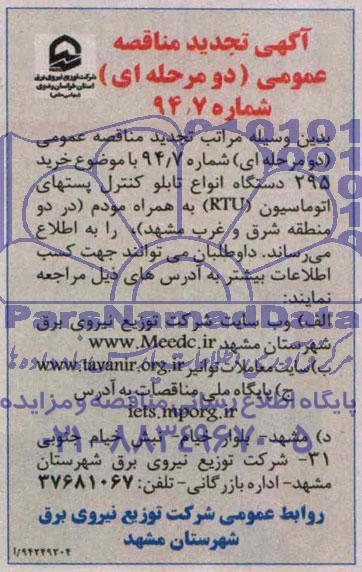 آگهی تجدید مناقصه
عمومی (دو مرحله ای)
شماره ۹۴٫۷
شرکت توزیع نیروی برق
استان خراسان رضوی
(سهامی خاص)
بدین وسیله مراتب تجدید مناقصه عمومی
(دو مرحله ای) شماره ۹۴٫۷ با موضوع خرید
۲۹۵ دستگاه انواع تابلو کنترل پستهای
اتوماسیون (RTU) به همراه مودم (در دو
منطقه شرق و غرب مشهد)، را به اطلاع
می‌رساند. داوطلبان می توانند جهت کسب
اطلاعات بیشتر به آدرس های ذیل مراجعه
نمایند:
ParsNamadData
الف) وب سایت شرکت توزیع نیروی برق
شهرستان مشهد www.Meedc.ir
ب) سایت معاملات توانیر www.tavanir.org.ir
ج) پایگاه ملی مناقصات به آدرس
پایگاه اطلاع رسانی مناقصه و مزایده
iets.mporg.ir
۰۲۱-۸۸۳۴۹۶۷۰-۵
د) مشهد- بلوار خیام- نبش خیام جنوبی
۳۱- شرکت توزیع نیروی برق شهرستان
مشهد- اداره بازرگانی- تلفن: ۳۷۶۸۱۰۶۷
روابط عمومی شرکت توزیع نیروی برق
شهرستان مشهد
۹۴۲۴۹۲۰۴/آ